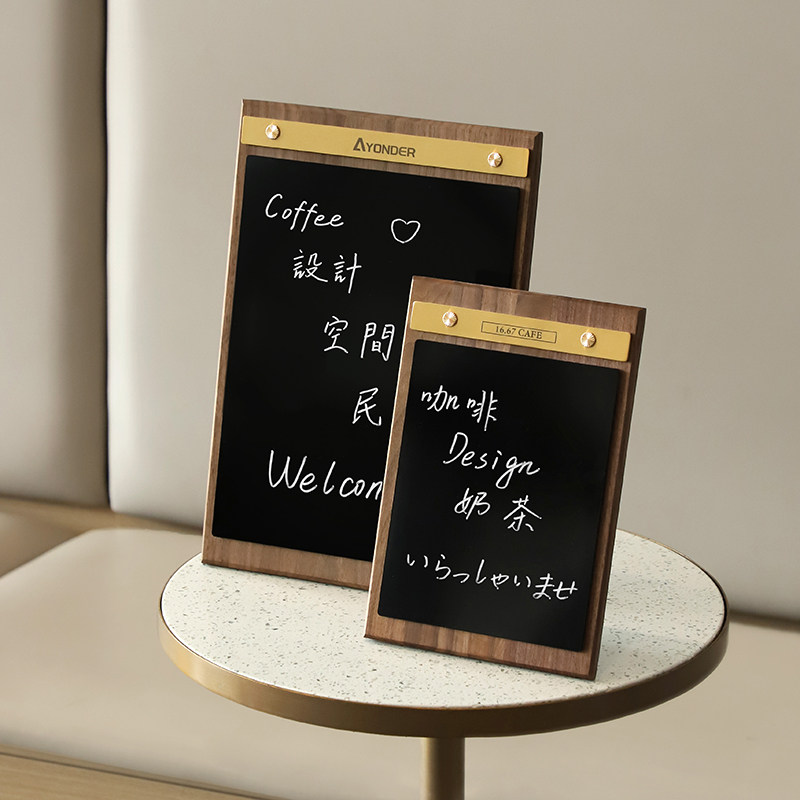 AYONDER
Coffee ♡
設計
空間
民
Welcom
16.67 CAFE
咖啡
Design
奶茶
いらっしゃいませ